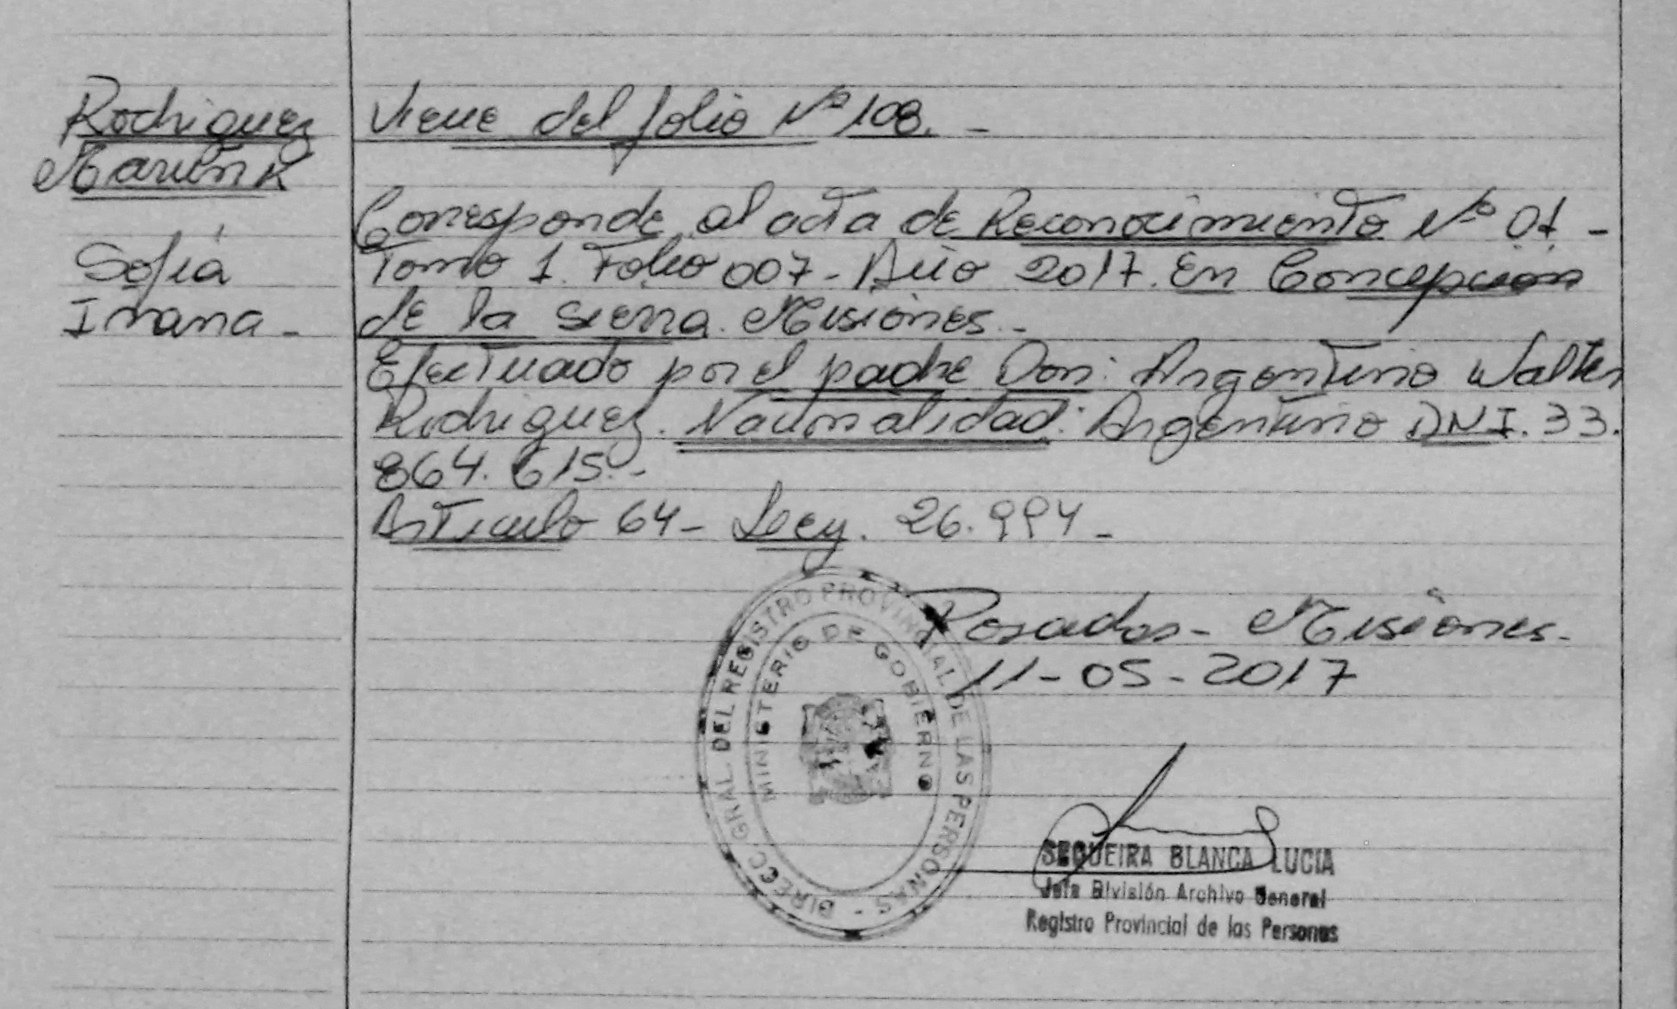 Rodriguez
Marlink
Sofiá
Imana -
Viene del folio Nº 108. -
Corresponde al acta de Reconocimiento Nº 01 -
Tomo 1. Folio 007 - Año 2017. En Concepción
de la Sierra. Misiones. -
Efectuado por el padre Don: Argentino Walter
Rodriguez. Nacionalidad: Argentino DNI. 33.
864.615. -
Articulo 64 - Ley. 26.994 -
Posadas - Misiones.
11 - 05 - 2017
DIRECC. GRAL. DEL REGISTRO PROVINCIAL DE LAS PERSONAS -
MINISTERIO DE GOBIERNO
SEQUEIRA BLANCA LUCIA
Jefa División Archivo General
Registro Provincial de las Personas